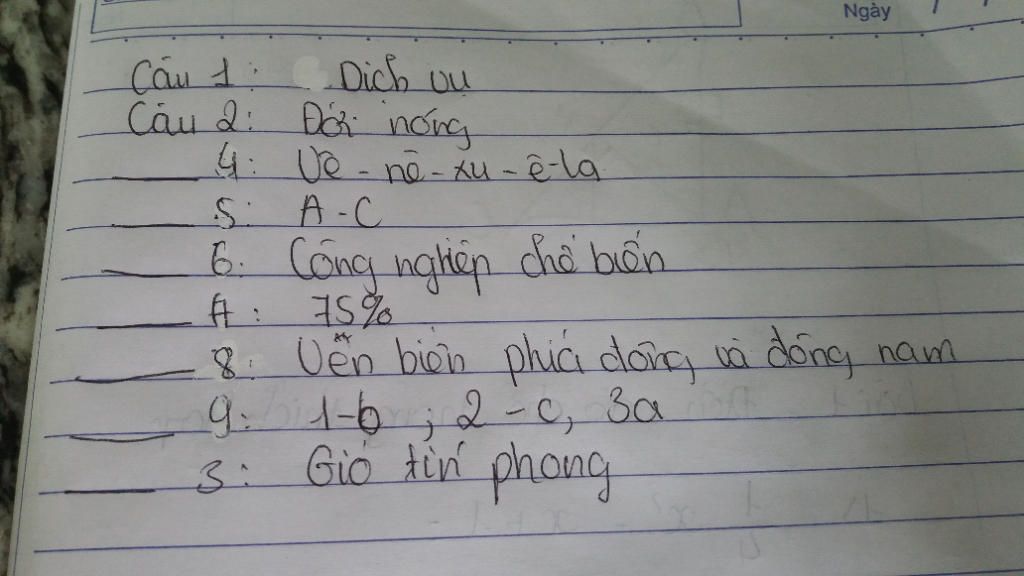 Ngày
Câu 1: Dịch vụ
Câu 2: Đới nóng
4: Vê-nê-xu-ê-la
5: A-C
6: Công nghiệp chế biến
7: 75%
8: Vên biên phiá đông và đông nam
9: 1-b; 2-c, 3a
3: Gió tín phong